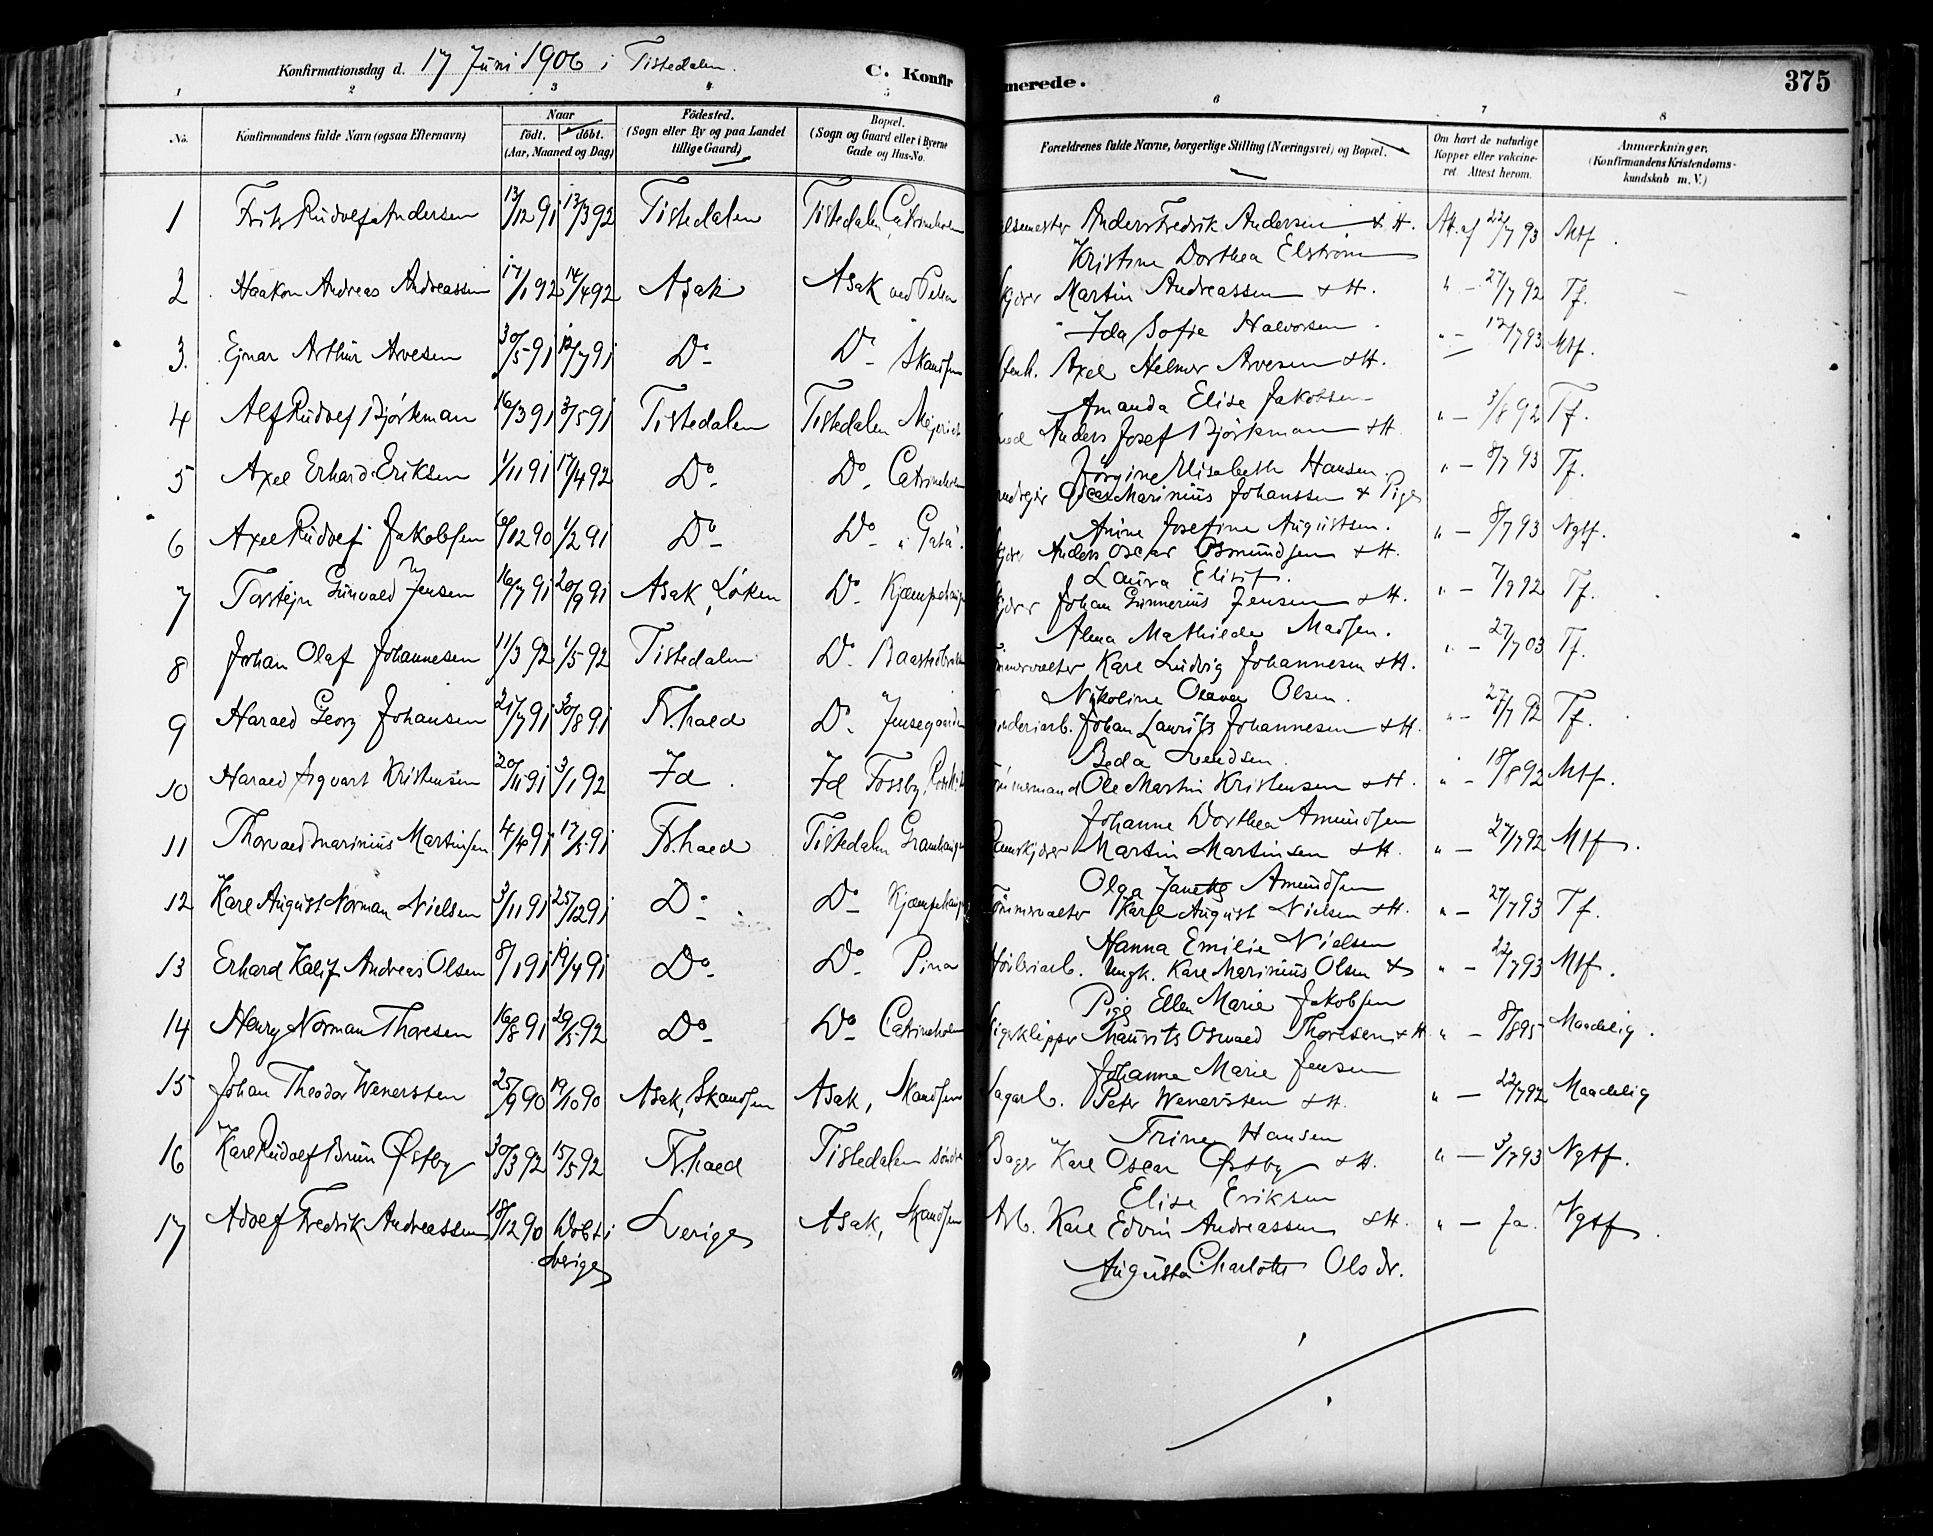 Konfirmationsdag d. 17 Juni 1906 i Tistedalen.
C. Konfirmerede.
375
1 2 3 4 5 6 7 8
No. Konfirmandens fulde Navn (ogsaa Efternavn) Naar født. døbt. (Aar, Maaned og Dag) Fødested. (Sogn eller By og paa Landet tillige Gaard) Bopæl. (Sogn og Gaard eller i Byerne Gade og Hus-No. Forældrenes fulde Navne, borgerlige Stilling (Næringsvei) og Bopæl. Om havt de naturlige Kopper eller vakcineret Attest herom. Anmærkninger. (Konfirmandens Kristendomskundskab m. V.)
1 Fritz Rudolf Andersen 13/12 91 13/3 92 Tistedalen Tistedalen Catrineholm Anders Fredrik Andersen & H. Att. af 22/7 93 Mtf.
Kristine Dorthea Elstrøm
2 Haakon Andreas Andreassen 17/1 92 14/4 92 Asak Asak Martin Andreassen & H. " - 27/7 92 Tf.
Ida Sofie Halvorsen
3. Ejnar Arthur Arvesen 30/5 91 12/7 91 Do Do Skansen Axel Helmer Arvesen & H. " - 12/7 93 Mtf.
Amanda Elise Jakobsen
4 Alf Rudolf Bjørkman 16/3 91 3/5 91 Tistedalen Tistedalen Mejeriet Anders Josef Bjørkman & H. " - 3/8 92 Tf.
Jørgine Elisabeth Hansen.
5 Axel Erhard Eriksen 1/11 91 17/4 92 Do Do Catrineholm Oscar Marinius Johanssen & Pige " - 8/7 93 Tf.
Anine Josefine Augustsen.
6 Axel Rudolf Jakobsen 10/12 90 1/2 91 Do Do Anders Oscar Osmundsen & H. " - 8/7 93 Ngtf.
Laura Elisif.
7 Torstejn Gunvald Jensen 16/7 91 20/9 91 Asak, Løken Do Kjæmpehaugen Johan Gunnerius Jensen & H. " - 7/9 92 Tf.
Alma Mathilde Madsen.
8 Johan Olaf Johannesen 11/3 92 1/5 92 Tistedalen Do Karl Ludvig Johannesen & H. " - 27/7 03 Tf.
Nikoline Olava Olsen.
9 Harald Georg Johansen 21/7 91 30/8 91 Fr.hald Do Jensegaarden Johan Laurits Johannesen & H. " - 27/7 92 Tf.
Beda Svendsen.
10 Harald Sigvart Kristensen 20/11 91 3/1 92 Id. Id Fossby, Tømmermand Ole Martin Kristensen & H. " - 18/8 92 Mtf.
Johanne Dorthea Amundsen
11 Thorvald Marinius Martinsen 4/4 91 17/5 91 Fr.hald Tistedalen Granhaugen Martin Martinsen & H. " - 27/7 92 Mtf.
Olga Janette Amundsen
12 Karl August Norman Nielsen 3/11 91 25/12 91 Do Do Kjæmpehaugen Karl August Nielsen & H. " - 27/7 93 Tf.
Hanna Emilie Nielsen
13 Erhard Kalif Andreas Olsen 8/1 91 19/4 91 Do Do Pina Høvleriarb. Ungk. Karl Marinius Olsen & " - 22/7 93 Mtf.
Pige Ellen Marie Jakobsen
14 Henry Norman Thoresen 16/8 91 29/5 92 Do Do Catrineholm Maurits Osvald Thoresen & H " - 8/8 95 Maadelig.
Johanne Marie Jensen
15 Johan Theodor Wenersten 25/9 90 19/10 90 Asak, Skansen Asak, Skansen Sagarb. Peter Wenersten & H. " - 22/7 92 Maadelig
Trine Hansen
16 Karl Rudolf Brun Østby 30/3 92 15/5 92 Fr.hald Tistedalen søndre Bager Karl Oscar Østby & H. " - 3/7 93 Ngtf.
Elise Eriksen
17 Adolf Fredrik Andreassen 18/12 90 Døbt i Sverige Asak, Skansen Arb. Karl Edvin Andreassen & H. " - Ja. Ngtf.
Sverige Augusta Charlotte Olsdr.